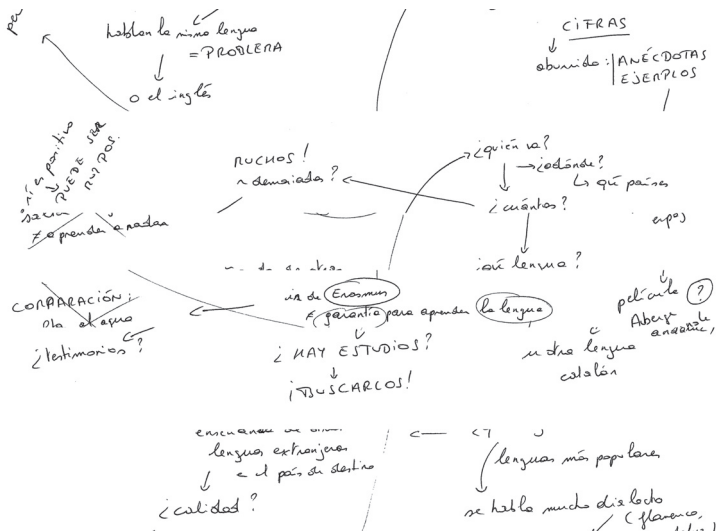 hablan la misma lengua
= PROBLEMA
o el inglés
CIFRAS
aburrido: ANÉCDOTAS
EJEMPLOS
sí es positivo
PUEDE SER
MUY POS.
≠ aprender a nadar
MUCHOS!
demasiados?
¿quién va?
¿adónde?
qué países
¿cuántos?
¿qué lengua?
COMPARACIÓN:
¿testimonios?
ir de Erasmus
≠ garantía para aprender la lengua
¿HAY ESTUDIOS?
¡BUSCARLOS!
película ?
u otra lengua
catalán
lenguas extranjeras
el país de destino
¿calidad?
lenguas más populares
se habla mucho dialecto
(flamenco,